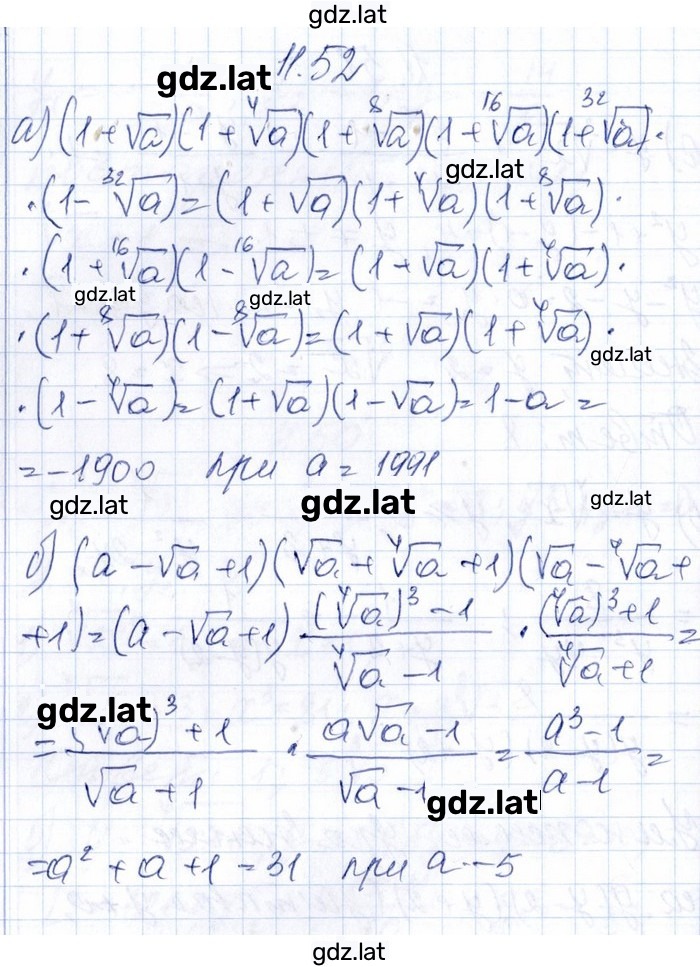 gdz.lat
11.52
gdz.lat
а) (1 + √a)(1 + ⁴√a)(1 + ⁸√a)(1 + ¹⁶√a)(1 + ³²√a)·
gdz.lat
·(1 - ³²√a) = (1 + √a)(1 + ⁴√a)(1 + ⁸√a)·
·(1 + ¹⁶√a)(1 - ¹⁶√a) = (1 + √a)(1 + ⁴√a)·
gdz.lat gdz.lat
·(1 + ⁸√a)(1 - ⁸√a) = (1 + √a)(1 + ⁴√a)·
gdz.lat
·(1 - ⁴√a) = (1 + √a)(1 - √a) = 1 - a =
= -1900 при a = 1991
gdz.lat gdz.lat gdz.lat
б) (a - √a + 1)(√a + ⁴√a + 1)(√a - ⁴√a +
+ 1) = (a - √a + 1) · ((⁴√a)³ - 1)/(⁴√a - 1) · ((⁴√a)³ + 1)/(⁴√a + 1) =
gdz.lat
= (√a)³ + 1/(√a + 1) · (a√a - 1)/(√a - 1) = (a³ - 1)/(a - 1) =
gdz.lat
= a² + a + 1 = 31 при a = -5
gdz.lat